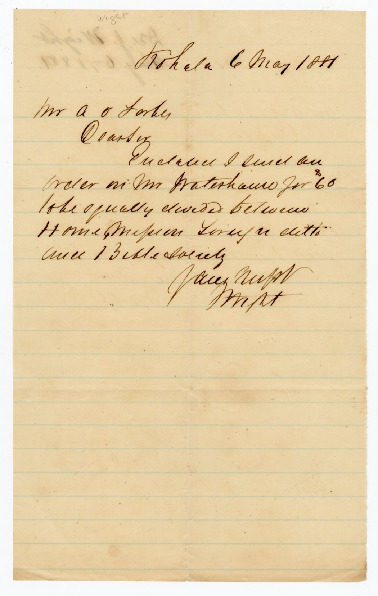 Wight
Kohala 6 May 1881
Mr A O Forbes
Dear Sir
Enclosed I send an
order on Mr Waterhouse for $60
to be equally divided between
Home Mission Foreign ditto
and Bible Society
James Wight
Wight